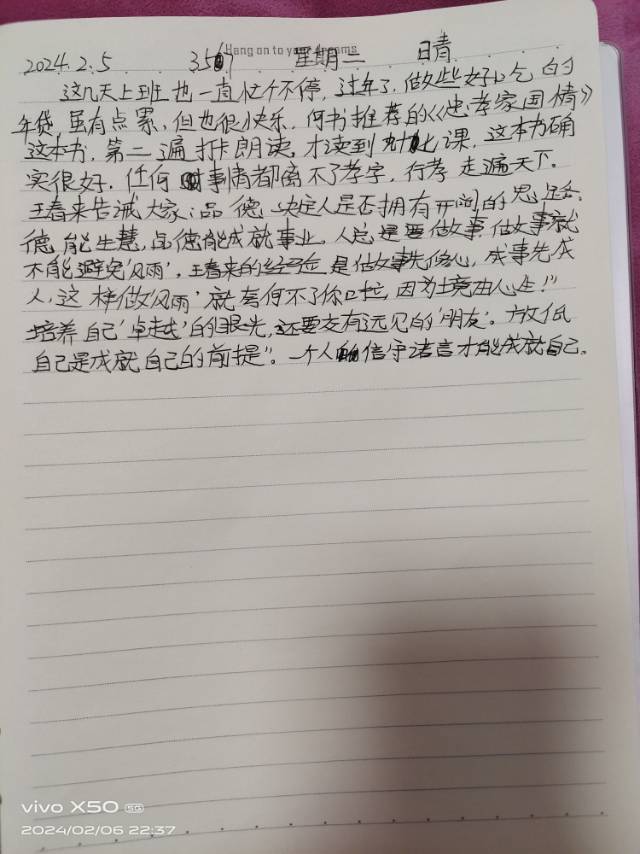 Hang on to your dreams
2024.2.5 星期二 晴
这几天上班也一直忙个不停,过年了,做些好吃的
年货,虽有点累,但也很快乐,何书推荐的《忠孝家国情》
这本书,第二遍打卡朗读,才读到课,这本书确
实很好,任何事情都离不了孝字,行孝走遍天下。
王春来告诫大家:品德决定人是否拥有开阔的思路,
德能生慧,品德能成就事业,人总是要做事,做事就
不能避免'风雨',王春来的经验是做事先修心,成事先成
人,这样做'风雨'就奈何不了你啦,因为境由心生!"
培养自己'卓越'的眼光,还要交有远见的'朋友'。"放低
自己是成就自己的前提"。一个人信守诺言才能成就自己。
vivo X50 5G
2024/02/06 22:37